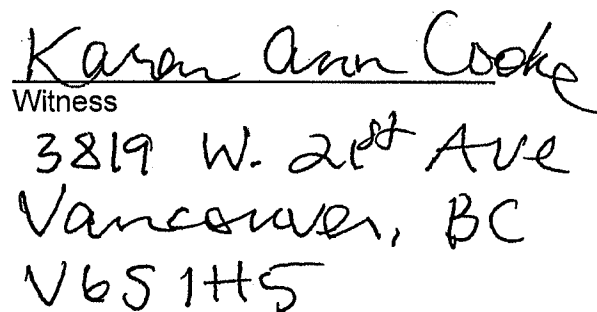 Karen Ann Cooke
Witness
3819 W. 21st Ave
Vancouver, BC
V6S 1H5